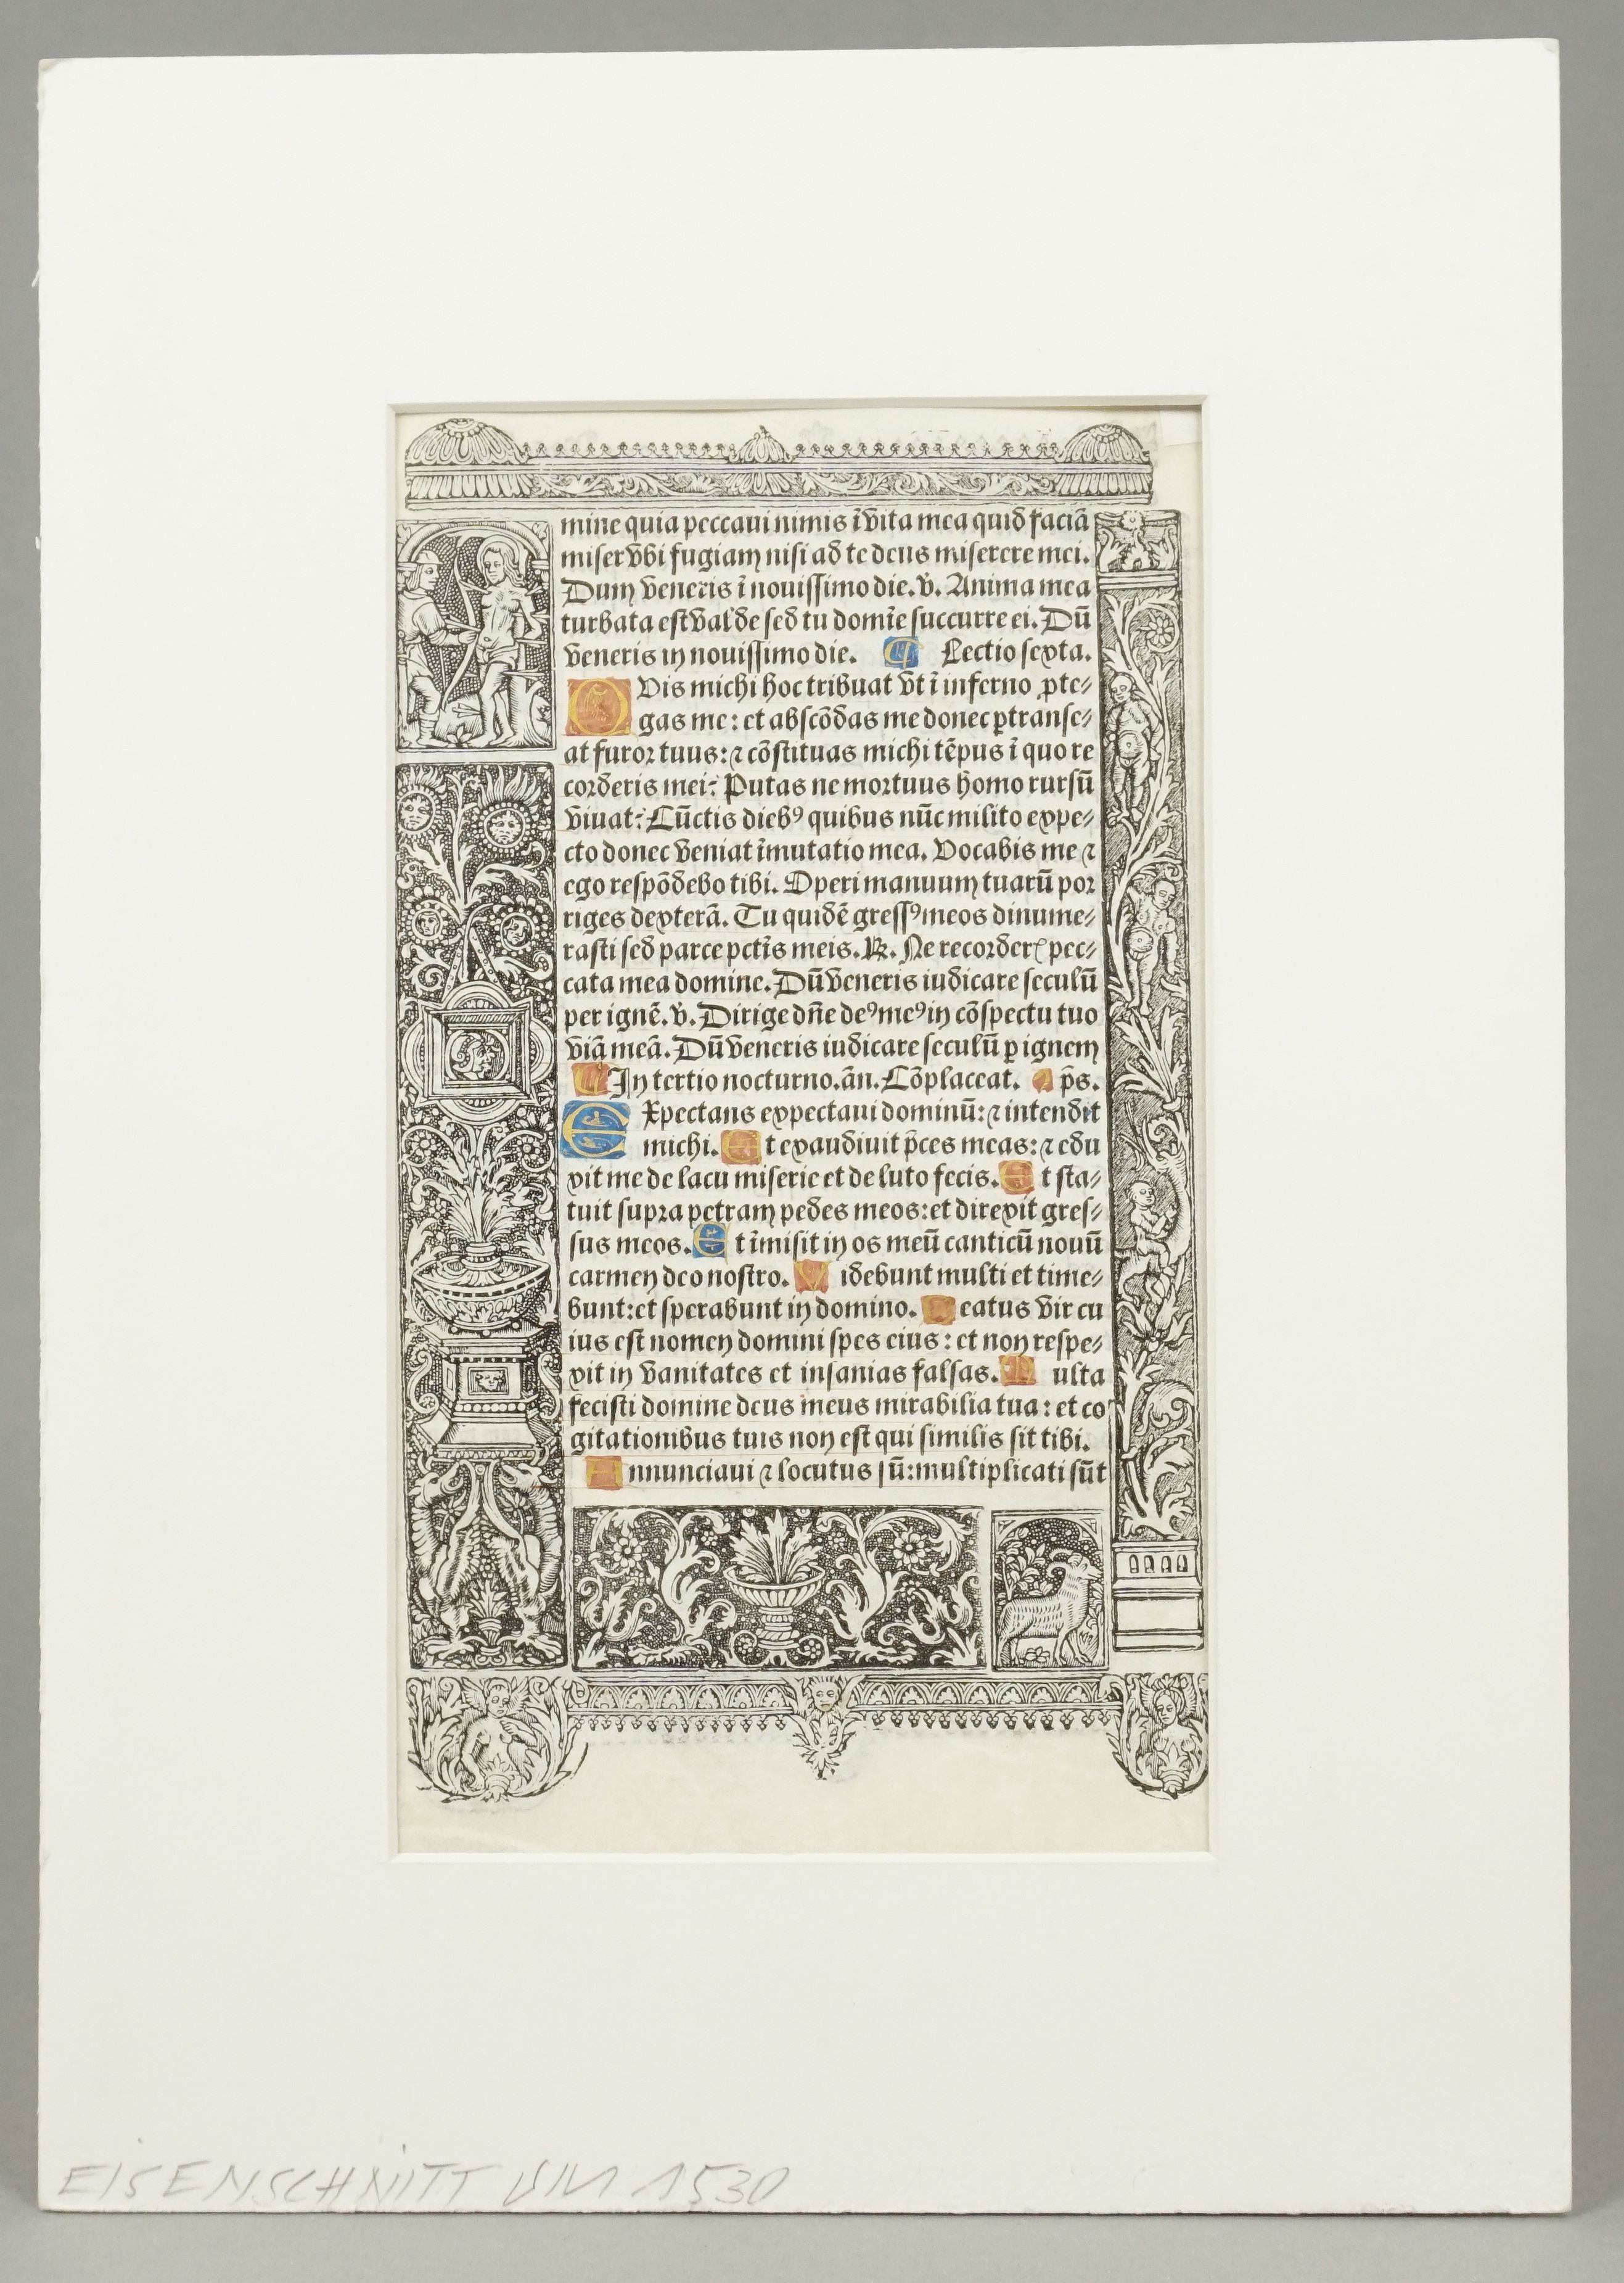 mine quia peccaui nimis ī vita mea quid faciā
miser vbi fugiam nisi ad te deus miserere mei.
Dum veneris ī nouissimo die. v̄. Anima mea
turbata est valde sed tu domīe succurre ei. Dū
veneris in nouissimo die. ¶ Lectio sexta.
QVis michi hoc tribuat vt ī inferno ꝓte⸗
gas me: et abscōdas me donec ꝑtranse⸗
at furor tuus: ⁊ cōstituas michi tēpus ī quo re
corderis mei: Putas ne mortuus homo rursū
viuat: Cūctis dieb⁹ quibus nūc milito expe⸗
cto donec veniat īmutatio mea. Vocabis me ⁊
ego respōdebo tibi. Operi manuum tuarū por
riges dexterā. Tu quidē gress⁹ meos dinume⸗
rasti sed parce pctīs meis. ℟. Ne recorderꝭ pec⸗
cata mea domine. Dū veneris iudicare seculū
per ignē. v̄. Dirige dn̄e de⁹ me⁹ in cōspectu tuo
viā meā. Dū veneris iudicare seculū ꝑ ignem
¶ In tertio nocturno. ān. Cōplaceat. p̄s.
EXpectans expectaui dominū: ⁊ intendit
michi. Et exaudiuit p̄ces meas: ⁊ edu
xit me de lacu miserie et de luto fecis. Et sta⸗
tuit supra petram pedes meos: et direxit gres⸗
sus meos. Et īmisit in os meū canticū nouū
carmen deo nostro. Videbunt multi et time⸗
bunt: et sperabunt in domino. Beatus vir cu
ius est nomen domini spes eius: et non respe⸗
xit in vanitates et insanias falsas. Multa
fecisti domine deus meus mirabilia tua: et co
gitationibus tuis non est qui similis sit tibi.
Annunciaui ⁊ locutus sū: multiplicati sūt
EISENSCHNITT UM 1530